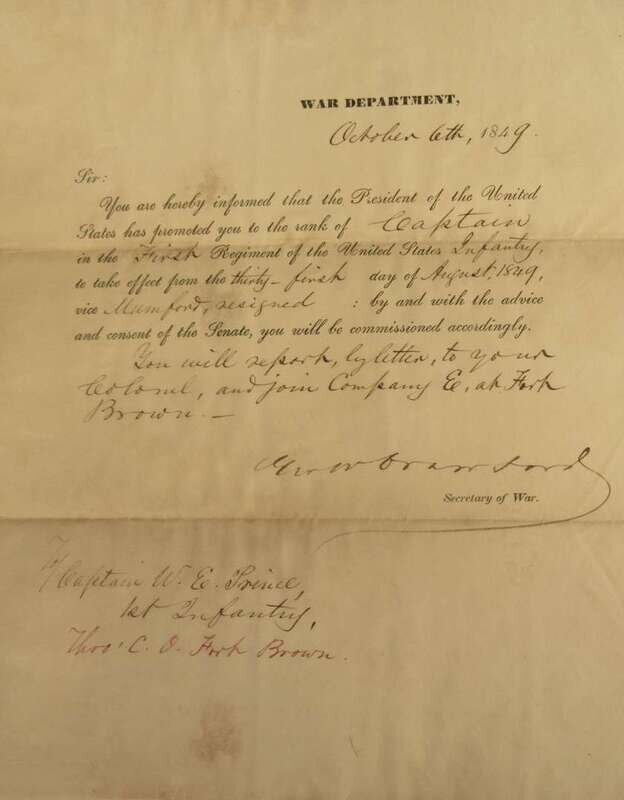 WAR DEPARTMENT,
October 6th, 1849.
Sir:
You are hereby informed that the President of the United
States has promoted you to the rank of Captain
in the First Regiment of the United States Infantry,
to take effect from the thirty-first day of August, 1849,
vice Mumford, resigned : by and with the advice
and consent of the Senate, you will be commissioned accordingly.
You will report, by letter, to your
Colonel, and join Company E, at Fort
Brown.—
Geo W Crawford
Secretary of War.
Captain W. E. Prince,
1st Infantry,
Thro' C. O. Fort Brown.